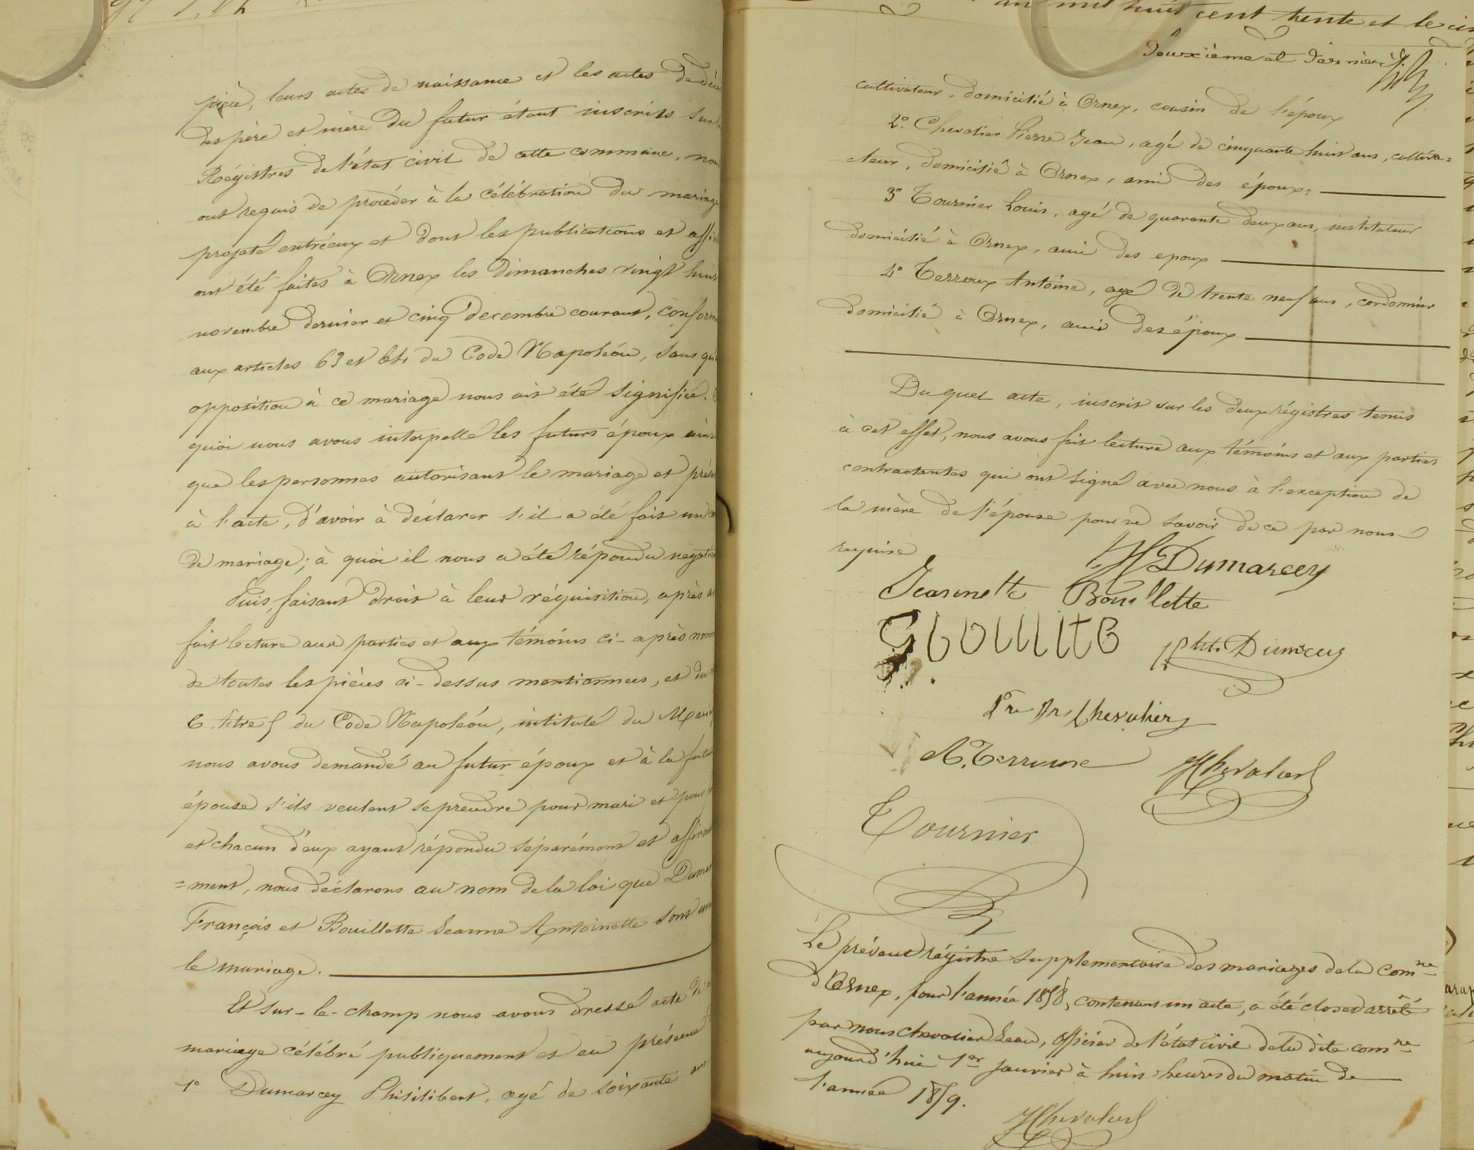 pièce, leurs actes de naissance et les actes de décè
des père et mère du futur étant inscrits sur
Régistres de l'état civil de cette commune, nou
ont requis de procéder à la célébration du mariage
projeté entr'eux et dont les publications et affi
ont été faites à Ornex les dimanches vingt huit
novembre dernier et cinq décembre courant, conform
aux articles 63 et 64 du Code Napoléon, sans qu'
opposition à ce mariage nous ait été signifiée.
quoi nous avons interpellé les futurs époux ain
que les personnes autorisant le mariage et prés
à l'acte, d'avoir à déclarer s'il a été fait un
de mariage; à quoi il nous a été répondu négati
Puis, faisant droit à leur réquisition, après a
fait lecture aux parties et aux témoins ci-après nom
de toutes les pièces ci-dessus mentionnées, et du
6. titre 5 du Code Napoléon, intitulé du Mari
nous avons demandé au futur époux et à la futu
épouse s'ils veulent se prendre pour mari et pour
et chacun d'eux ayant répondu séparément et affirma
=ment, nous déclarons au nom de la loi que Dumar
François et Bouillette Jeanne Antoinette sont un
le mariage.
Et sur-le-champ nous avons dressé acte
mariage célébré publiquement et en présence
1° Dumarcey Philibert, agé de soixante ans
mil huit cent trente et le
Deuxième et dernier
cultivateur, domicilié à Ornex, cousin de l'époux
2° Chevalier Pierre Jean, agé de cinquante huit ans, cultiva=
=teur, domicilié à Ornex, ami des époux;
3° Tournier Louis, agé de quarante deux ans, instituteur
domicilié à Ornex, ami des époux
4° Terroux Antoine, agé de trente neuf ans, cordonnier
domicilié à Ornex, ami des époux
Du quel acte, inscrit sur les deux régistres tenus
à cet effet, nous avons fait lecture aux témoins et aux parties
contractantes qui ont signé avec nous à l'exception de
la mère de l'épouse pour ne savoir de ce par nous
requise
Dumarcey
Jeannette Bouillette
Dumarcey
Pre Jn Chevalier
A. Terroux
Chevalier
Tournier
Le présent régistre supplémentaire des mariages de la comne
d'Ornex, pour l'année 1858, contenant un acte, a été clos et arrêté
par nous Chevalier Jean, officier de l'état civil de la dite comne
aujourd'hui 1er janvier à huit heures du matin de
l'année 1859.
Chevalier